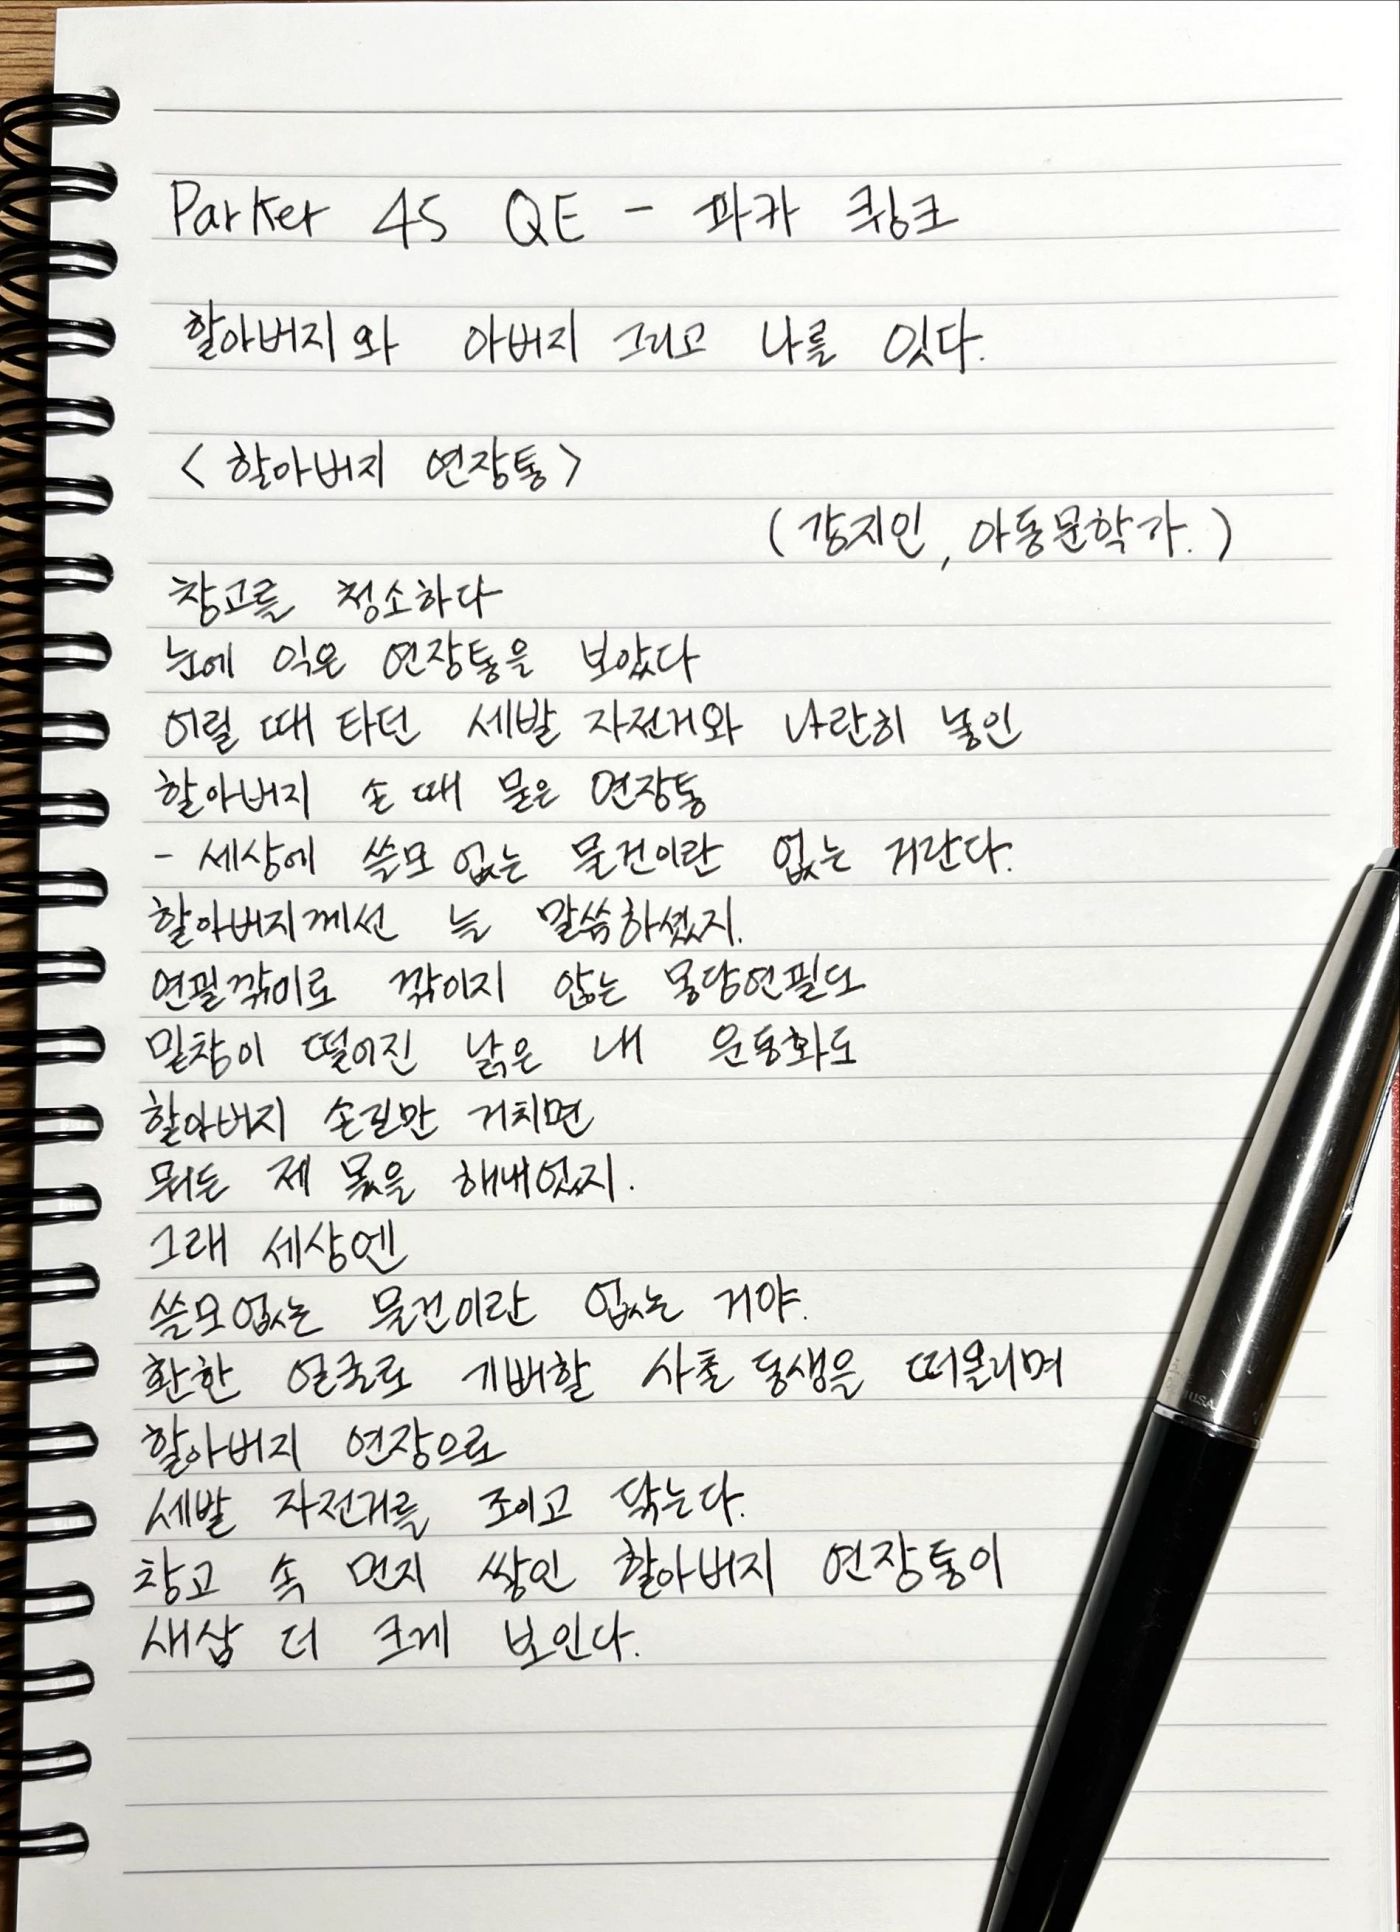 Parker 45 QE - 파카 큉크
할아버지와 아버지 그리고 나를 잇다.
<할아버지 연장통>
(강지인, 아동문학가.)
창고를 청소하다
눈에 익은 연장통을 보았다
어릴 때 타던 세발 자전거와 나란히 놓인
할아버지 손 때 묻은 연장통
- 세상에 쓸모 없는 물건이란 없는 거란다.
할아버지께선 늘 말씀하셨지.
연필깎이로 깎이지 않는 몽당연필도
밑창이 떨어진 낡은 내 운동화도
할아버지 손길만 거치면
뭐든 제 몫을 해내었지.
그래 세상엔
쓸모없는 물건이란 없는 거야.
환한 얼굴로 기뻐할 사촌 동생을 떠올리며
할아버지 연장으로
세발 자전거를 조이고 닦는다.
창고 속 먼지 쌓인 할아버지 연장통이
새삼 더 크게 보인다.
USA